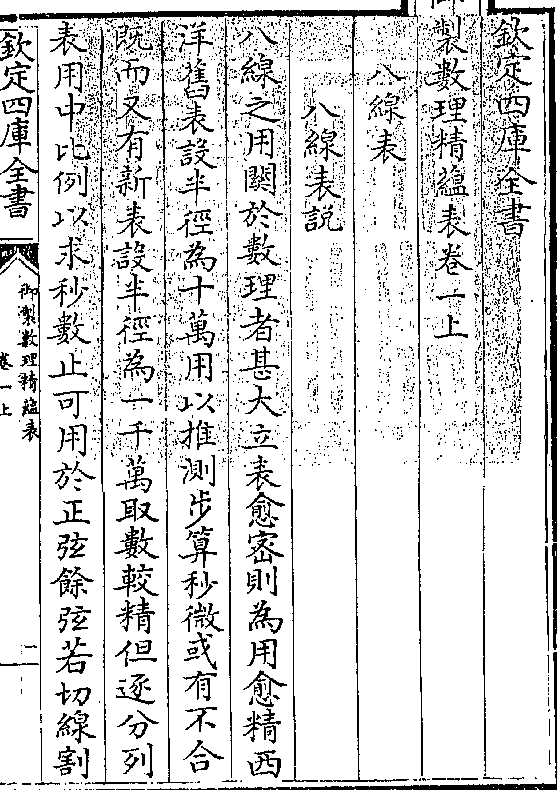 欽定四庫全書
御製數理精蘊表卷一上
八線表
八線表説
八線之用關於數理者甚大立表愈密則為用愈精西
洋舊表設半徑為十萬用以推測步算秒微或有不合
既而又有新表設半徑為一千萬取數較精但逐分列
表用中比例以求秒數止可用於正弦餘弦若切線割
欽定四庫全書
御製數理精蘊表
卷一上
一